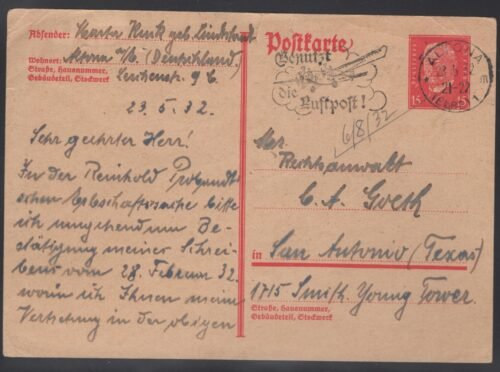 Absender: Marta Kunk geb. Lindstand
Wohnort: Altona a/E. (Deutschland)
Straße, Hausnummer,
Gebäudeteil, Stockwerk
Lerchenstr. 9 c
23.5.32
Sehr geehrter Herr!
In der Reinhold Probandt
schen Erbschaftssache bitte
ich umgehend um Be-
stätigung meiner Schrei-
bens vom 28. Februar 32.
worin ich Ihnen meine
Vertretung in der obigen
Postkarte
Benutzt
die Luftpost!
ALTONA
(ELBE) 1
15
6/8/32
Mr.
Rechtsanwalt
C. A. Goeth
in San Antonio (Texas)
1715 Smith Young Tower.
Straße, Hausnummer,
Gebäudeteil, Stockwerk